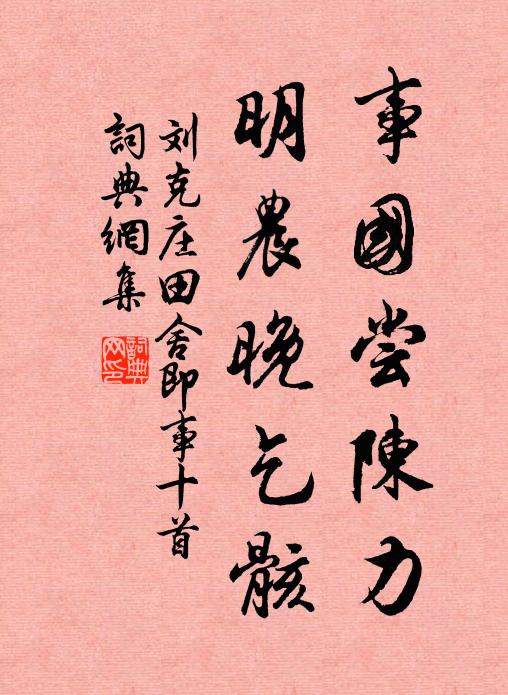 事國嘗陳力
明農晚乞骸
刘克庄田舍即事十首
詞典網集
詞典網印